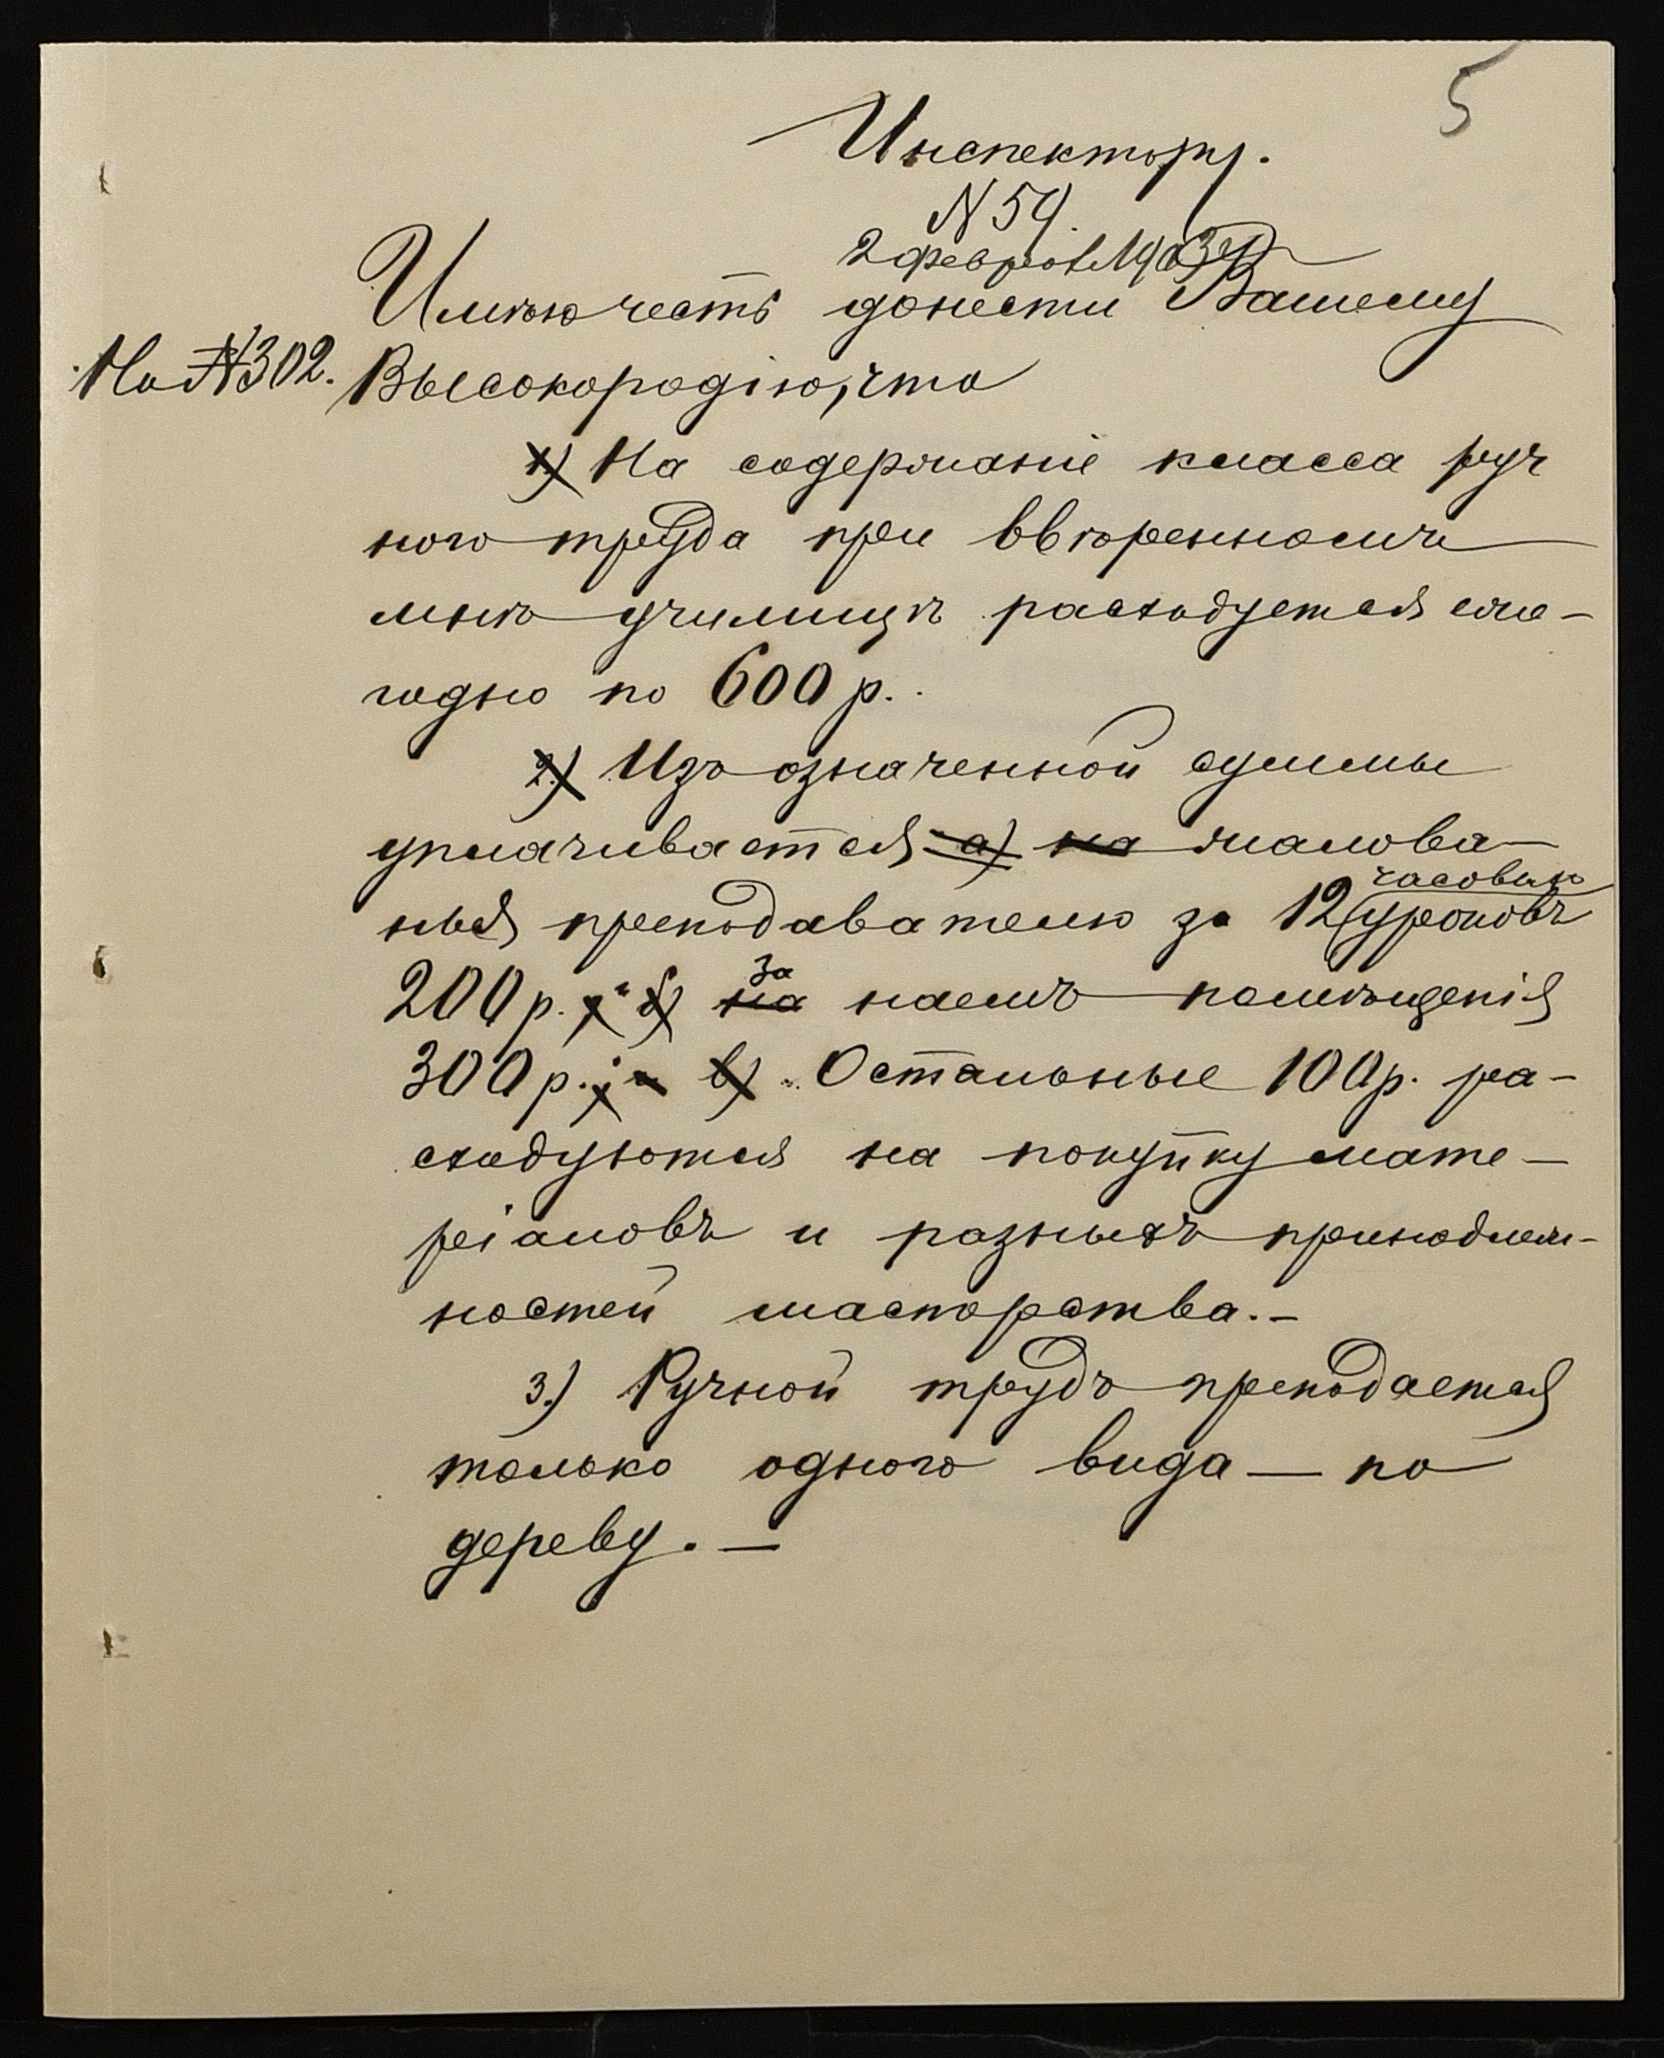 5
Инспектору.
N 59.
2 феврал 1903 г.
Имѣю честь донести Вашему
На N 302. Высокородію, что
1) На содержаніе класса руч
ного труда при ввѣренномъ
мнѣ училищѣ расходуется еже-
годно по 600 р.
2) Изъ означенной суммы
уплачивается а) на жалова-
нья преподавателю за 12 часовыхъ уроковъ
200 р. ; и б) на за наемъ помѣщенія
300 р.; и в) Остальные 100 р. ра-
сходуются на покупку мате-
ріаловъ и разныхъ принадлеж-
ностей мастерства. -
3.) Ручной трудъ преподается
только одного вида — по
дереву. —